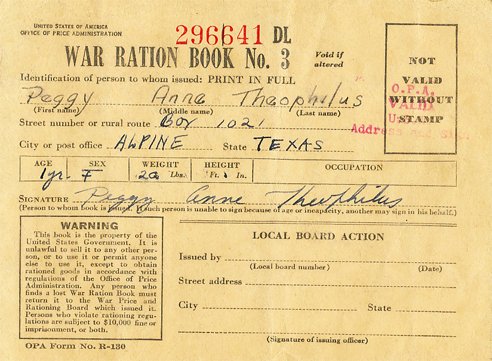 UNITED STATES OF AMERICA
OFFICE OF PRICE ADMINISTRATION
296641 DL
WAR RATION BOOK No. 3
Void if
altered
NOT
VALID
WITHOUT
STAMP
Identification of person to whom issued: PRINT IN FULL
Peggy Anne Theophilus
(First name) (Middle name) (Last name)
O.P.A.
VALID
Street number or rural route Box 1021
Address
City or post office ALPINE State TEXAS
AGE SEX WEIGHT HEIGHT OCCUPATION
1yr. F 20 Lbs. Ft. In.
SIGNATURE Peggy Anne Theophilus
(Person to whom book is issued. If such person is unable to sign because of age or incapacity, another may sign in his behalf.)
WARNING
This book is the property of the
United States Government. It is
unlawful to sell it to any other per-
son, or to use it or permit anyone
else to use it, except to obtain
rationed goods in accordance with
regulations of the Office of Price
Administration. Any person who
finds a lost War Ration Book must
return it to the War Price and
Rationing Board which issued it.
Persons who violate rationing regu-
lations are subject to $10,000 fine or
imprisonment, or both.
OPA Form No. R-130
LOCAL BOARD ACTION
Issued by
(Local board number) (Date)
Street address
City State
(Signature of issuing officer)